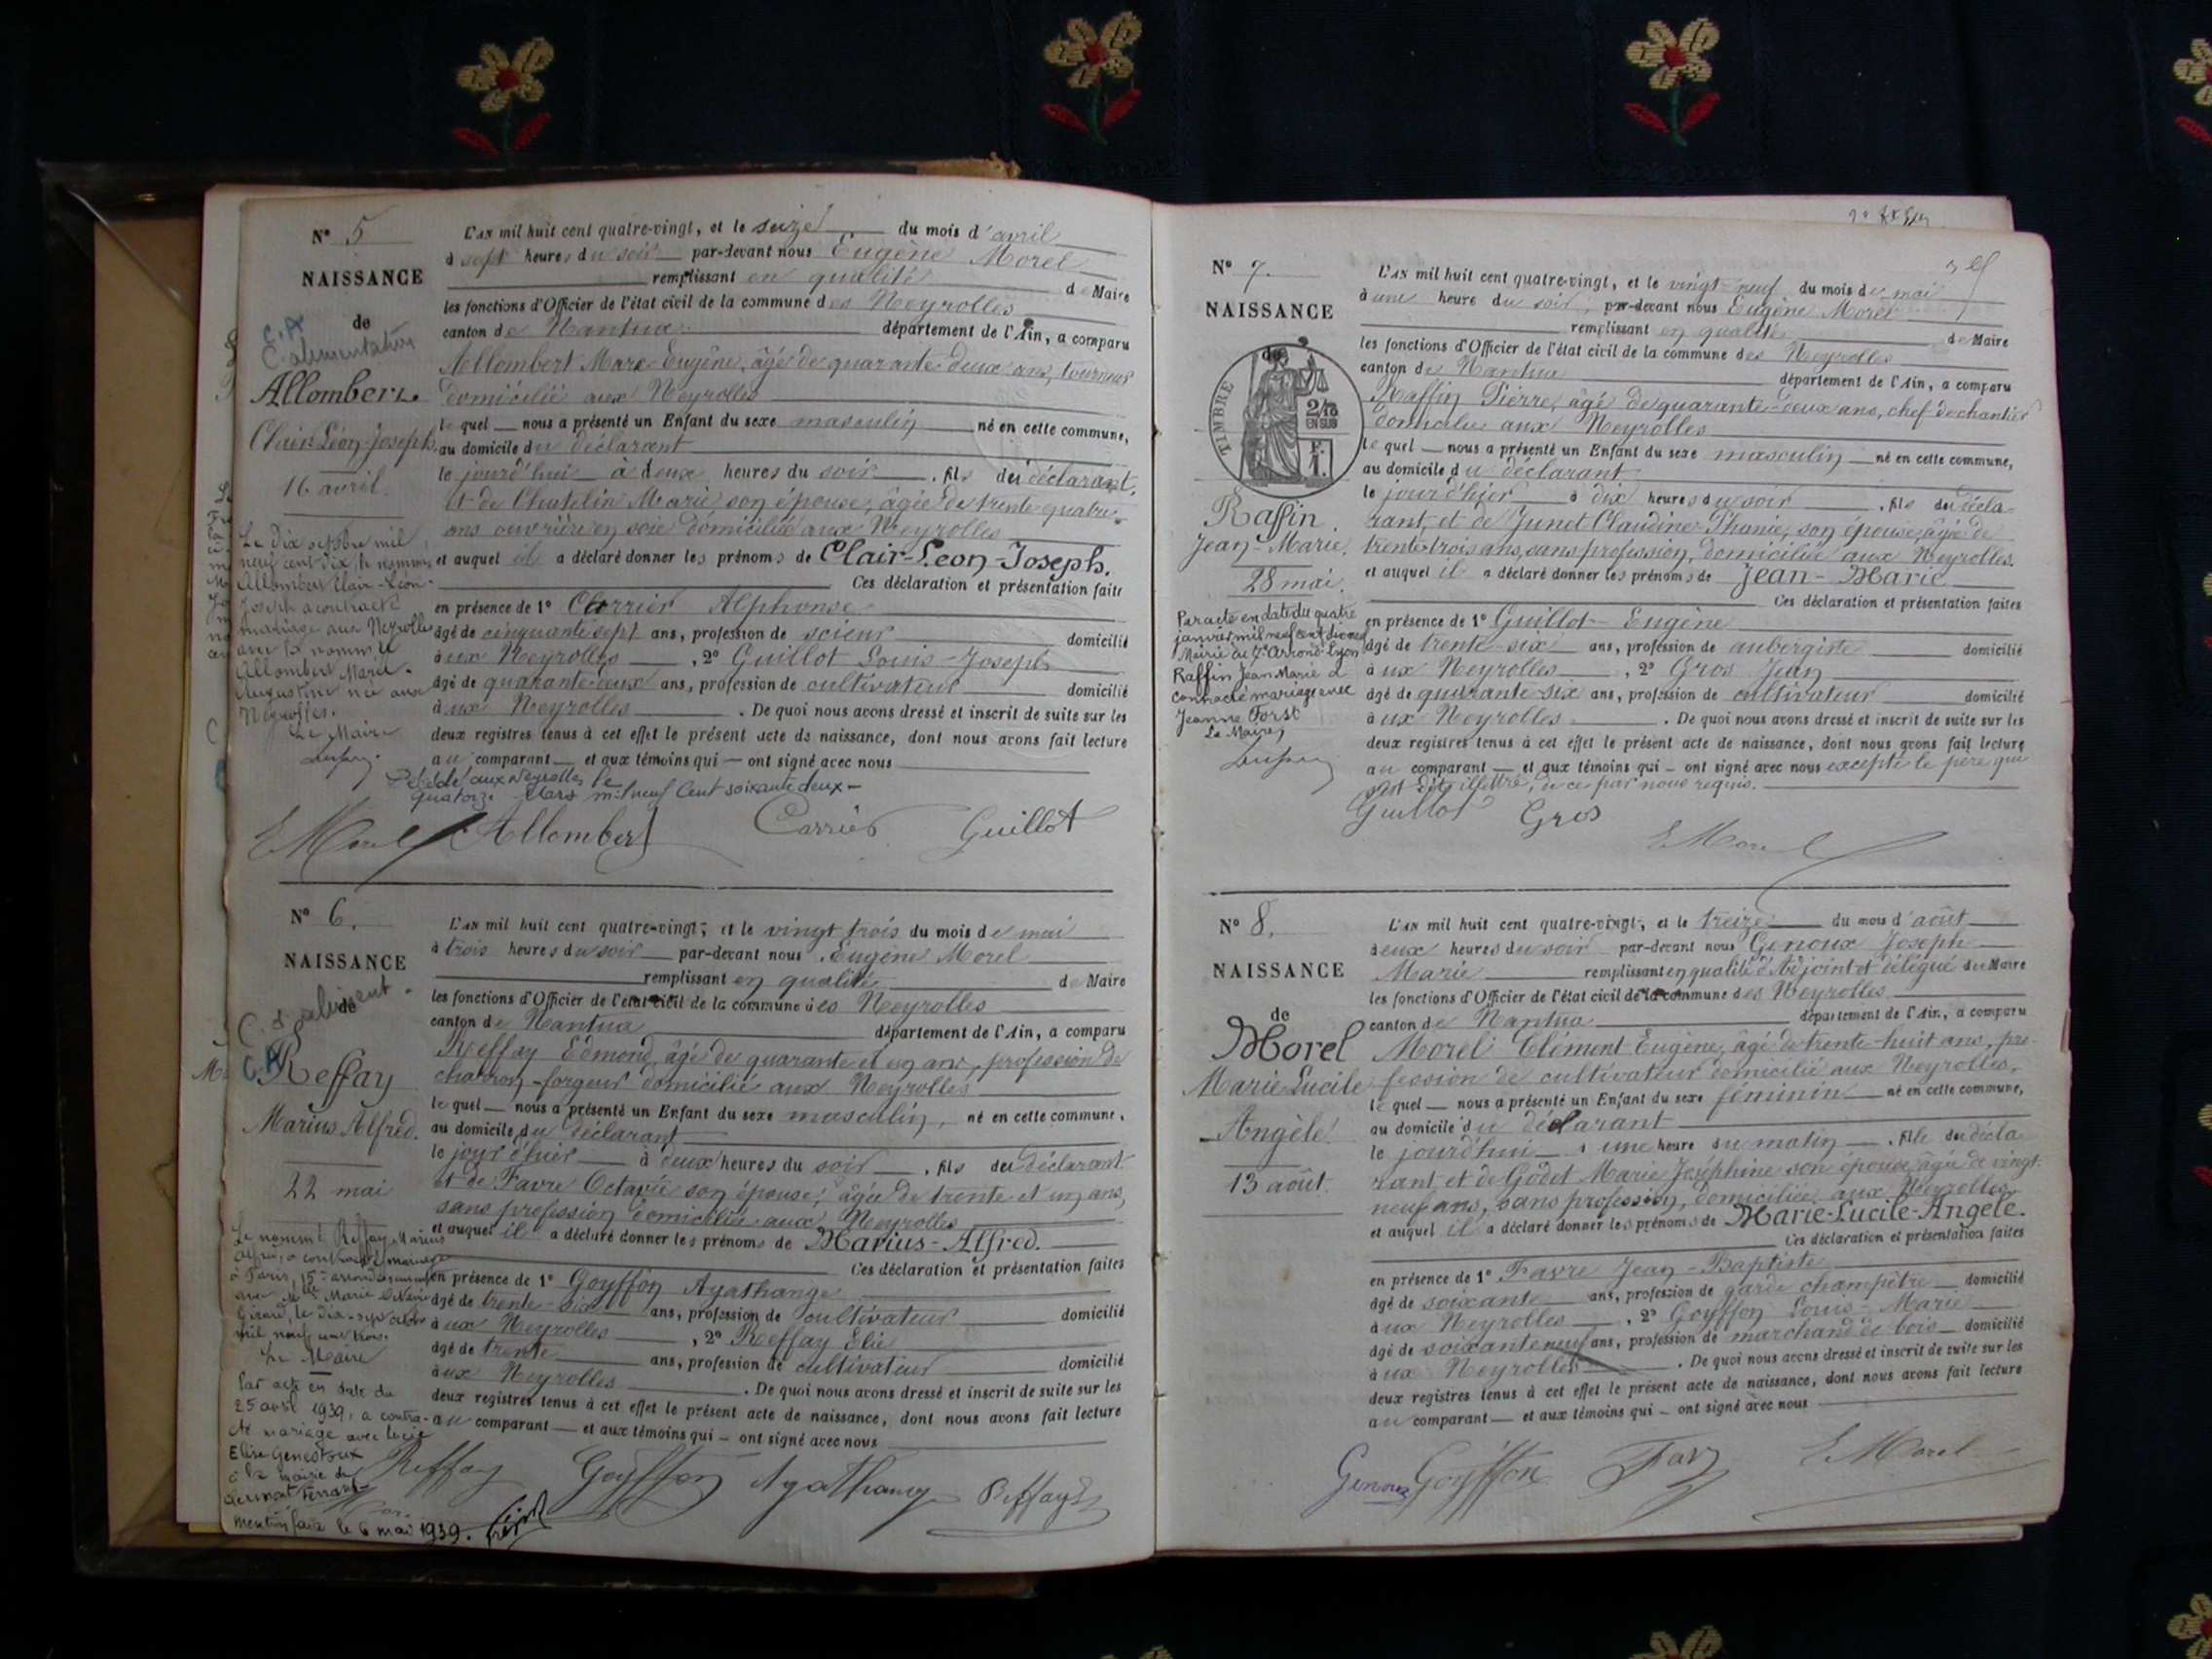 N° 5
NAISSANCE
de
C. A
C. alimentation
Allombert
Clair Léon Joseph.
16 avril.
Le dix octobre mil
neuf cent dix, le nommé
Allombert Clair-Léon-
Joseph a contracté
mariage aux Neyrolles
avec la nommée
Allombert Marie-
Augustine née aux
Neyrolles.
Le Maire
L'AN mil huit cent quatre-vingt, et le seize du mois d'avril
à sept heures du soir par-devant nous Eugène Morel
remplissant en qualité de Maire
les fonctions d'Officier de l'état civil de la commune des Neyrolles
canton de Nantua département de l'Ain, a comparu
Allombert Marc-Eugène, âgé de quarante-deux ans, tourneur
domicilié aux Neyrolles
lequel nous a présenté un Enfant du sexe masculin né en cette commune,
au domicile du déclarant
le jourd'hui à deux heures du soir, fils du déclarant,
et de Chatelin Marie, son épouse, âgée de trente-quatre
ans ouvrière en soie domiciliée aux Neyrolles
et auquel il a déclaré donner les prénoms de Clair-Léon-Joseph.
Ces déclaration et présentation faite
en présence de 1° Carrier Alphonse
âgé de cinquante sept ans, profession de scieur domicilié
aux Neyrolles, 2° Guillot Louis-Joseph
âgé de quarante-deux ans, profession de cultivateur domicilié
aux Neyrolles. De quoi nous avons dressé et inscrit de suite sur les
deux registres tenus à cet effet le présent acte de naissance, dont nous avons fait lecture
au comparant et aux témoins qui ont signé avec nous
Décédé aux Neyrolles le
quatorze Mars mil neuf Cent soixante deux-
E Morel Allombert Carrier Guillot
N° 6.
NAISSANCE
de
C. A
Reffay
Marius Alfred.
22 mai
Le nommé Reffay Marius
Alfred, a contracté mariage
à Paris, 15e arrondissement
avec Melle Marie
Girard, le dix-sept octobre
mil neuf cent trois.
Le Maire
Par acte en date du
25 avril 1939, a contra-
cté mariage avec Lucie
Elise Genestoux
à la mairie de
Clermont Ferrand
mention faite le 6 mai 1939.
L'AN mil huit cent quatre-vingt, et le vingt trois du mois de mai
à trois heures du soir par-devant nous Eugène Morel
remplissant en qualité de Maire
les fonctions d'Officier de l'état civil de la commune des Neyrolles
canton de Nantua département de l'Ain, a comparu
Reffay Edmond, âgé de quarante et un ans, profession de
charron-forgeur domicilié aux Neyrolles
lequel nous a présenté un Enfant du sexe masculin, né en cette commune,
au domicile du déclarant
le jour d'hier à deux heures du soir, fils du déclarant
et de Favre Octavie son épouse, âgée de trente et un ans,
sans profession domiciliée aux Neyrolles
et auquel il a déclaré donner les prénoms de Marius-Alfred.
Ces déclaration et présentation faites
en présence de 1° Goyffon Agathange
âgé de trente-six ans, profession de cultivateur domicilié
aux Neyrolles, 2° Reffay Elie
âgé de trente ans, profession de cultivateur domicilié
aux Neyrolles. De quoi nous avons dressé et inscrit de suite sur les
deux registres tenus à cet effet le présent acte de naissance, dont nous avons fait lecture
au comparant et aux témoins qui ont signé avec nous
Reffay Goyffon Agathange Reffay E
N° 7.
NAISSANCE
de
TIMBRE
2/10
EN SUS
F.
1.
Raffin
Jean-Marie.
28 mai.
Par acte en date du quatre
janvier mil neuf cent dix neuf
Mairie du 7e Arrond Lyon
Raffin Jean Marie a
contracté mariage avec
Jeanne Forst
Le Maire,
L'AN mil huit cent quatre-vingt, et le vingt-neuf du mois de mai
à une heure du soir, par-devant nous Eugène Morel
remplissant en qualité de Maire
les fonctions d'Officier de l'état civil de la commune des Neyrolles
canton de Nantua département de l'Ain, a comparu
Raffin Pierre, âgé de quarante-deux ans, chef de chantier
domicilié aux Neyrolles
lequel nous a présenté un Enfant du sexe masculin né en cette commune,
au domicile du déclarant
le jour d'hier à dix heures du soir, fils du décla-
rant, et de Junet Claudine-Phanie, son épouse, âgée de
trente-trois ans, sans profession, domiciliée aux Neyrolles.
et auquel il a déclaré donner les prénoms de Jean-Marie
Ces déclaration et présentation faites
en présence de 1° Guillot Eugène
âgé de trente-six ans, profession de aubergiste domicilié
aux Neyrolles, 2° Gros Jean
âgé de quarante-six ans, profession de cultivateur domicilié
aux Neyrolles. De quoi nous avons dressé et inscrit de suite sur les
deux registres tenus à cet effet le présent acte de naissance, dont nous avons fait lecture
au comparant et aux témoins qui ont signé avec nous excepté le père qui
s'est dit illettré, de ce par nous requis.
Guillot Gros
E Morel
N° 8.
NAISSANCE
de
Morel
Marie Lucile
Angèle
13 août.
L'AN mil huit cent quatre-vingt, et le treize du mois d'août
à deux heures du soir par-devant nous Genoux Joseph
Marie remplissant en qualité d'Adjoint et délégué du Maire
les fonctions d'Officier de l'état civil de la commune des Neyrolles
canton de Nantua département de l'Ain, a comparu
Morel Clément Eugène, âgé de trente-huit ans, pro-
fession de cultivateur domicilié aux Neyrolles.
lequel nous a présenté un Enfant du sexe féminin né en cette commune,
au domicile du déclarant
le jourd'hui à une heure du matin, fille du décla-
rant et de Godet Marie Joséphine son épouse, âgée de vingt-
neuf ans, sans profession, domiciliée aux Neyrolles
et auquel il a déclaré donner les prénoms de Marie-Lucile-Angèle.
Ces déclaration et présentation faites
en présence de 1° Favre Jean-Baptiste
âgé de soixante ans, profession de garde champêtre domicilié
aux Neyrolles, 2° Goyffon Louis-Marie
âgé de soixante neuf ans, profession de marchand de bois domicilié
aux Neyrolles. De quoi nous avons dressé et inscrit de suite sur les
deux registres tenus à cet effet le présent acte de naissance, dont nous avons fait lecture
au comparant et aux témoins qui ont signé avec nous
Genoux Goyffon Favre E Morel